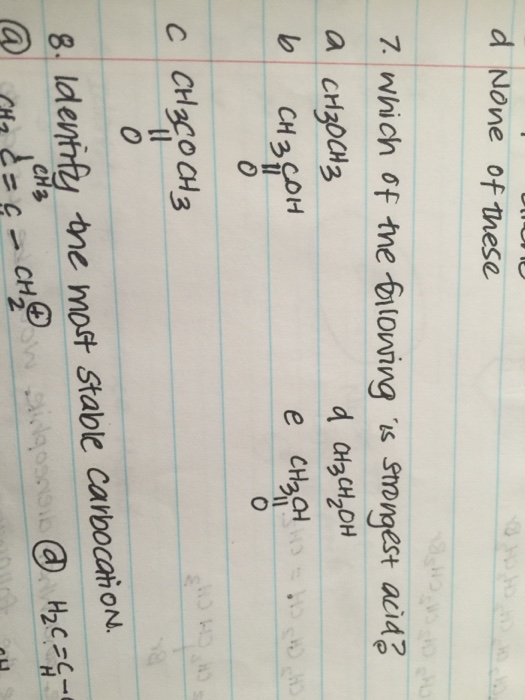 d None of these
7. which of the following is strongest acid?
a CH3OCH3
d CH3CH2OH
b CH3COH
||
O
e CH3CH
||
O
c CH3COCH3
||
O
8. Identify the most stable carbocation.
CH3
|
ⓐ CH3 C = C - CH2 ⊕
ⓓ H2C = C -
H